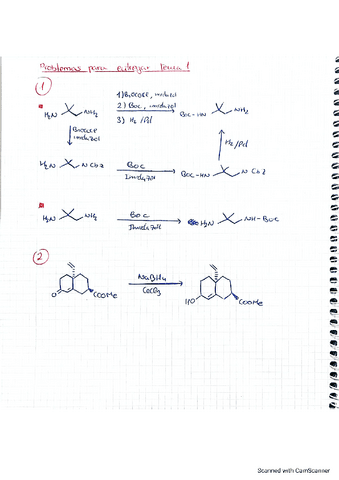 Problemas para entregar tema 1
①
1) BnOCOCl, imidazol
2) Boc, imidazol
3) H2/Pd
H2N NH2
Boc-HN NH2
imidazol
H2/Pd
H2N NCbz
Boc
Imidazol
Boc-HN NCbz
H2N NH2
Boc
Imidazol
H2N NH-Boc
②
NaBH4
CeCl3
O COOMe
HO COOMe
Scanned with CamScanner